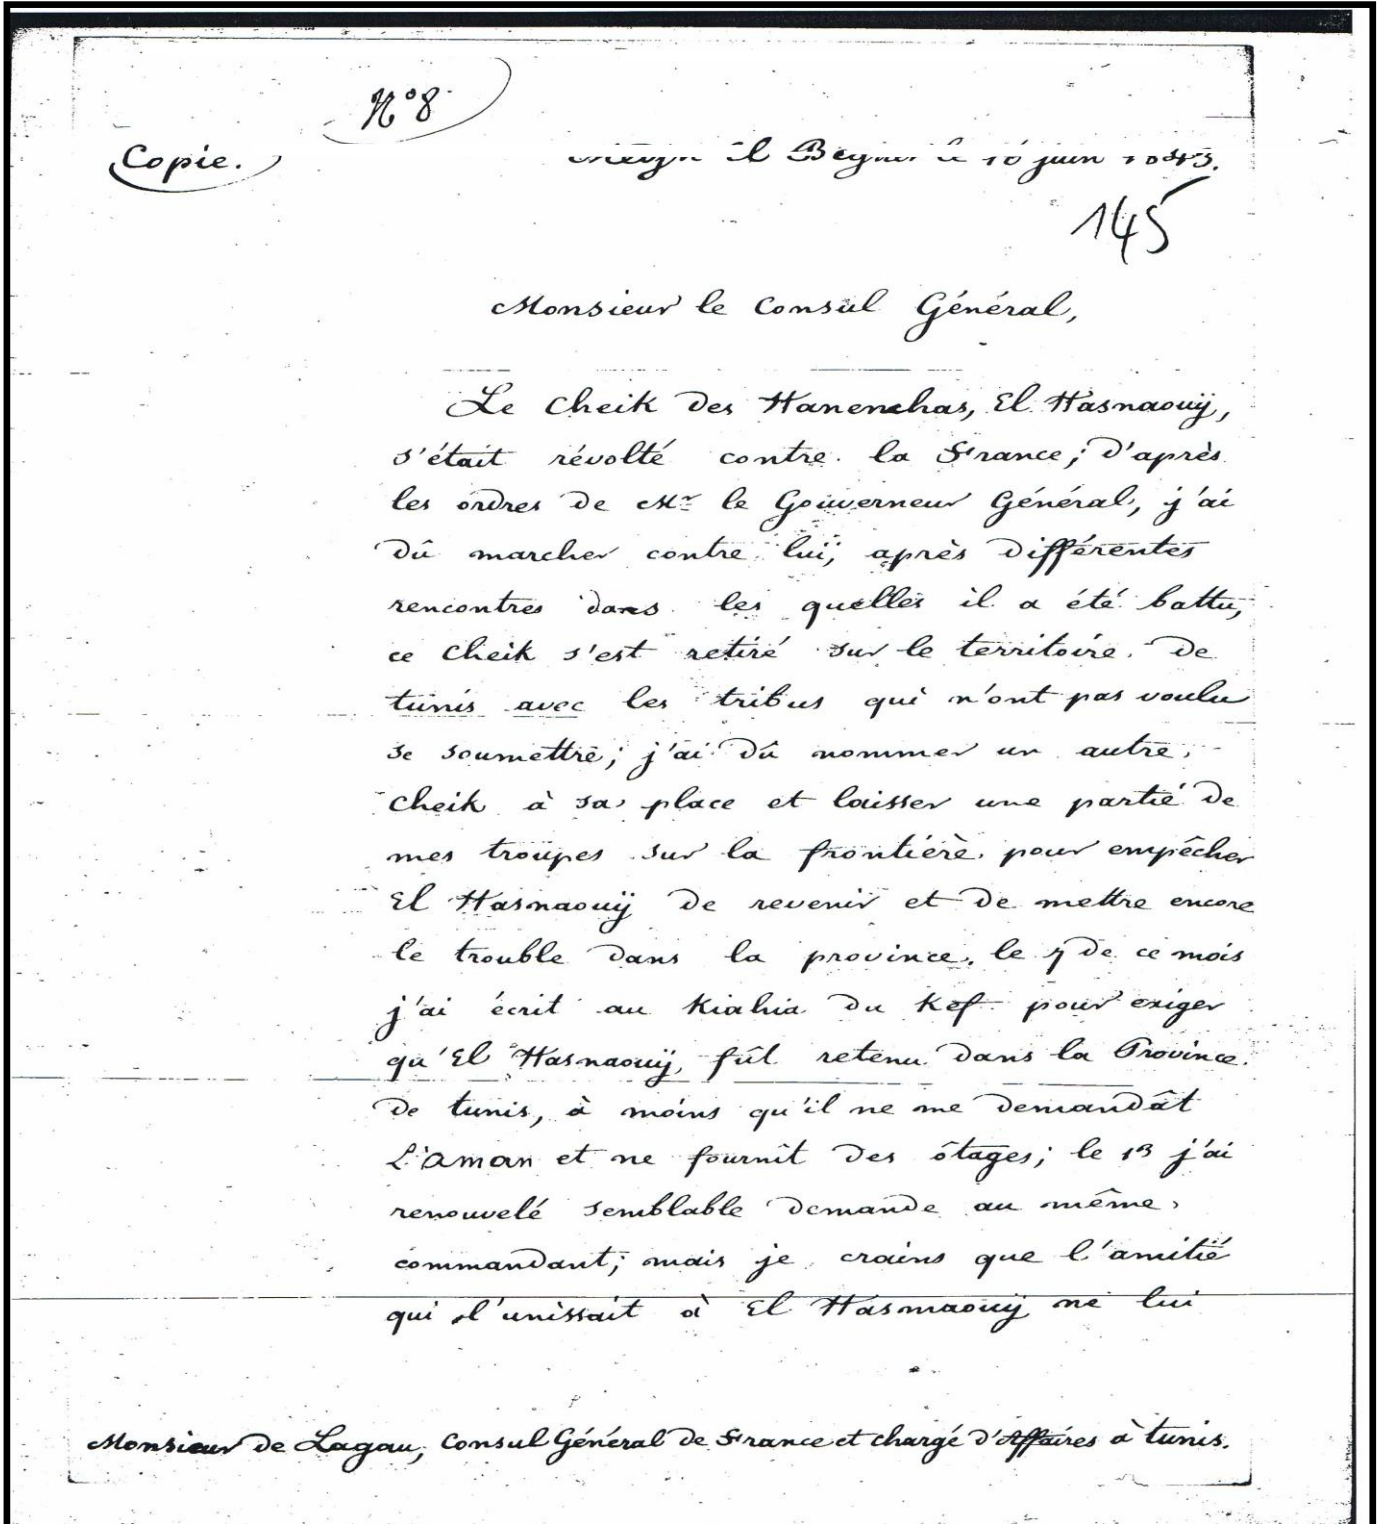 N° 8
Copie.
El juin
145
Monsieur le Consul Général,
Le Cheik des Hanenchas, El Hasnaouÿ,
s'était révolté contre la France; d'après
les ordres de Mr le Gouverneur Général, j'ai
dû marcher contre lui, après différentes
rencontres dans les quelles il a été battu,
ce Cheik s'est retiré sur le territoire de
tunis avec les tribus qui n'ont pas voulu
se soumettre; j'ai dû nommer un autre
Cheik à sa place et laisser une partie de
mes troupes sur la frontière pour empêcher
El Hasnaouÿ de revenir et de mettre encore
le trouble dans la province. le 7 de ce mois
j'ai écrit au Kiahia du Kef pour exiger
qu'El Hasnaouÿ, fût retenu dans la Province
de tunis, à moins qu'il ne me demandât
L'aman et ne fournît des ôtages; le 13 j'ai
renouvelé semblable demande au même
commandant; mais je crains que l'amitié
qui l'unissait à El Hasnaouÿ ne lui
Monsieur de Lagau, Consul Général de France et chargé d'Affaires à tunis.